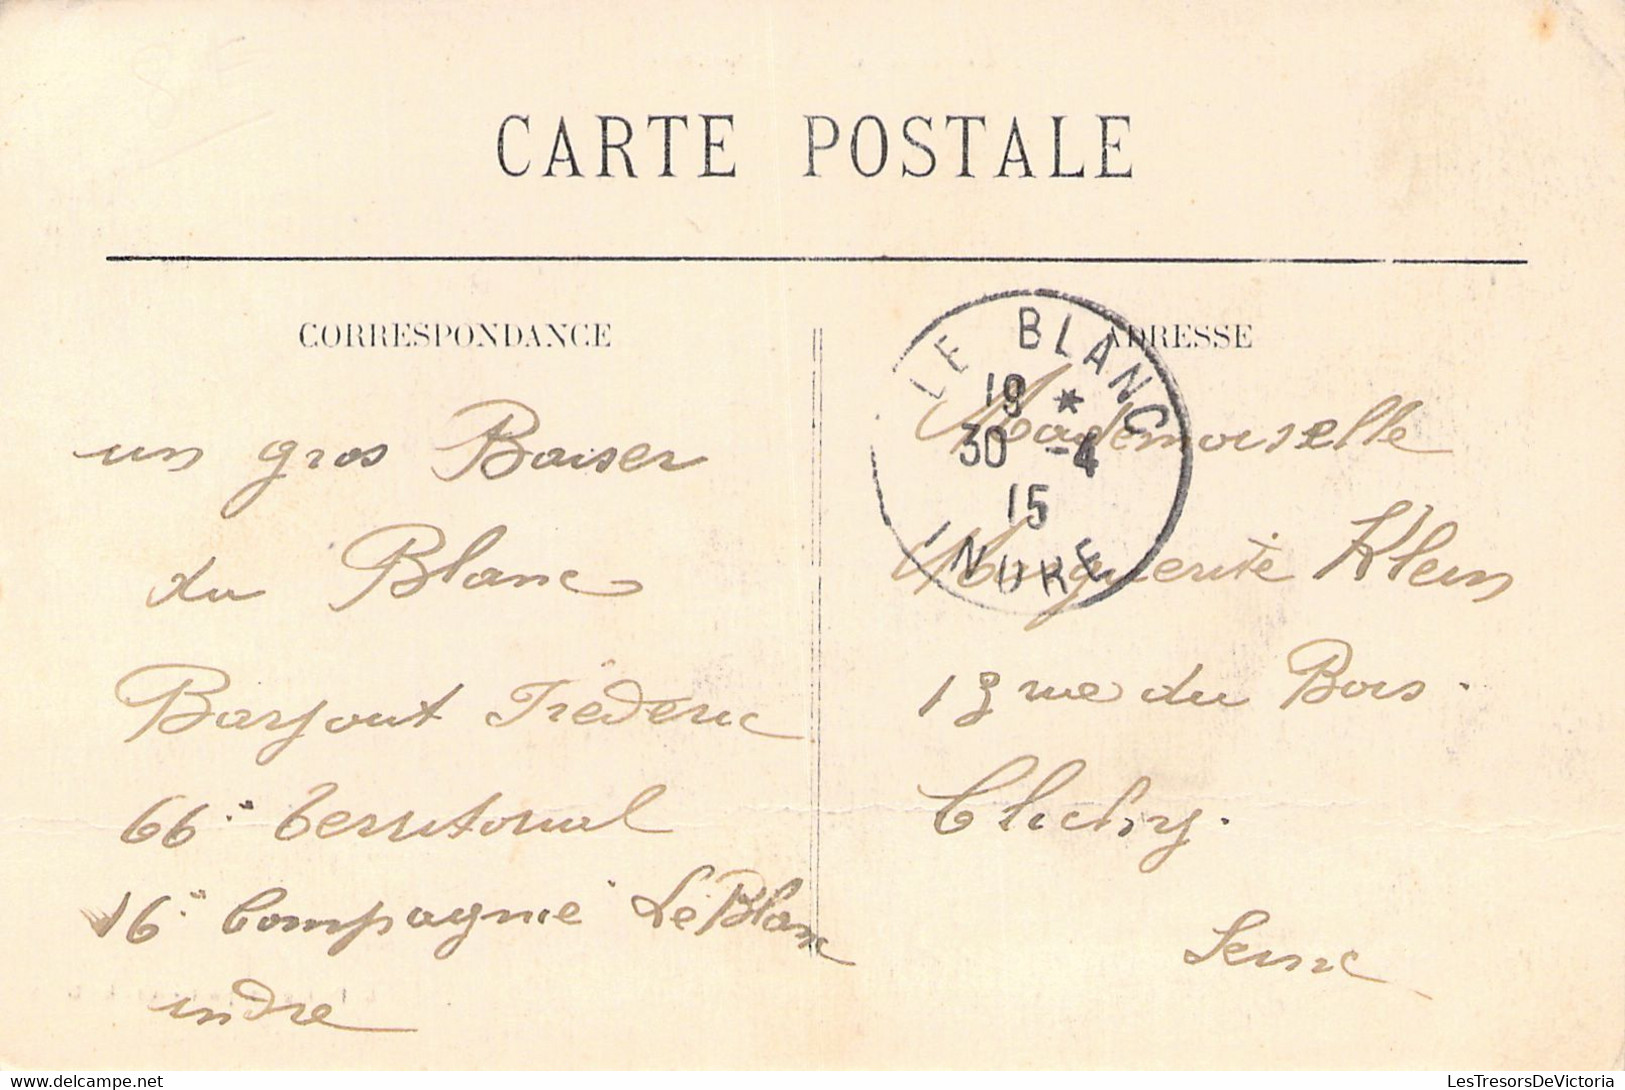 8 F
CARTE POSTALE
CORRESPONDANCE
un gros Baiser
du Blanc
Barjout Fréderic
66e territorial
16e Compagnie Le Blanc
indre
ADRESSE
LE BLANC
19 *
30 -4
15
INDRE
Mademoiselle
Marguerite Klein
13 rue du Bois.
Clichy.
Seine
www.delcampe.net
LesTresorsDeVictoria